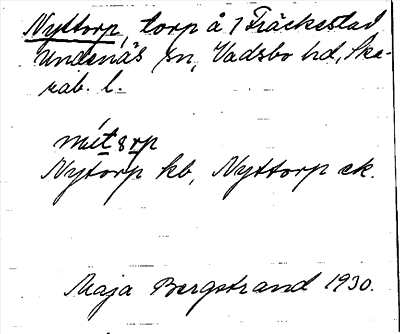 Nyttorp, torp å 1 Fräckestad
Undenäs sn, Vadsbo hd, Ska-
rab. l.
Nytorp kb, Nyttorp ek.
Maja Bergstrand 1930.